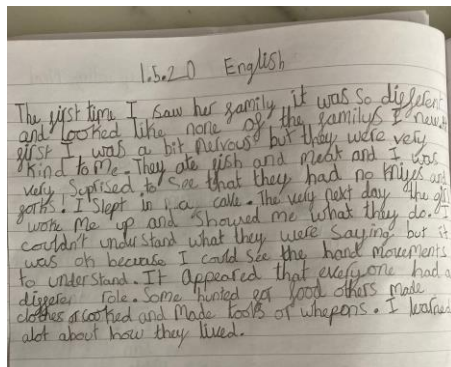 1.5.20 English
The first time I saw her family it was so different
and looked like none of the familys I new. At
first I was a bit nurvous but they were very
kind to me. They ate fish and meat and I was
very suprised to see that they had no knifes and
forks! I slept in a cave. The very next day the girl
woke me up and showed me what they do. I
couldn't understand what they were saying but it
was ok because I could see the hand movements
to understand. It appeared that everyone had a
differer role. Some hunted for food others made
clothes or cooked and made tools or whepons. I learned
alot about how they lived.